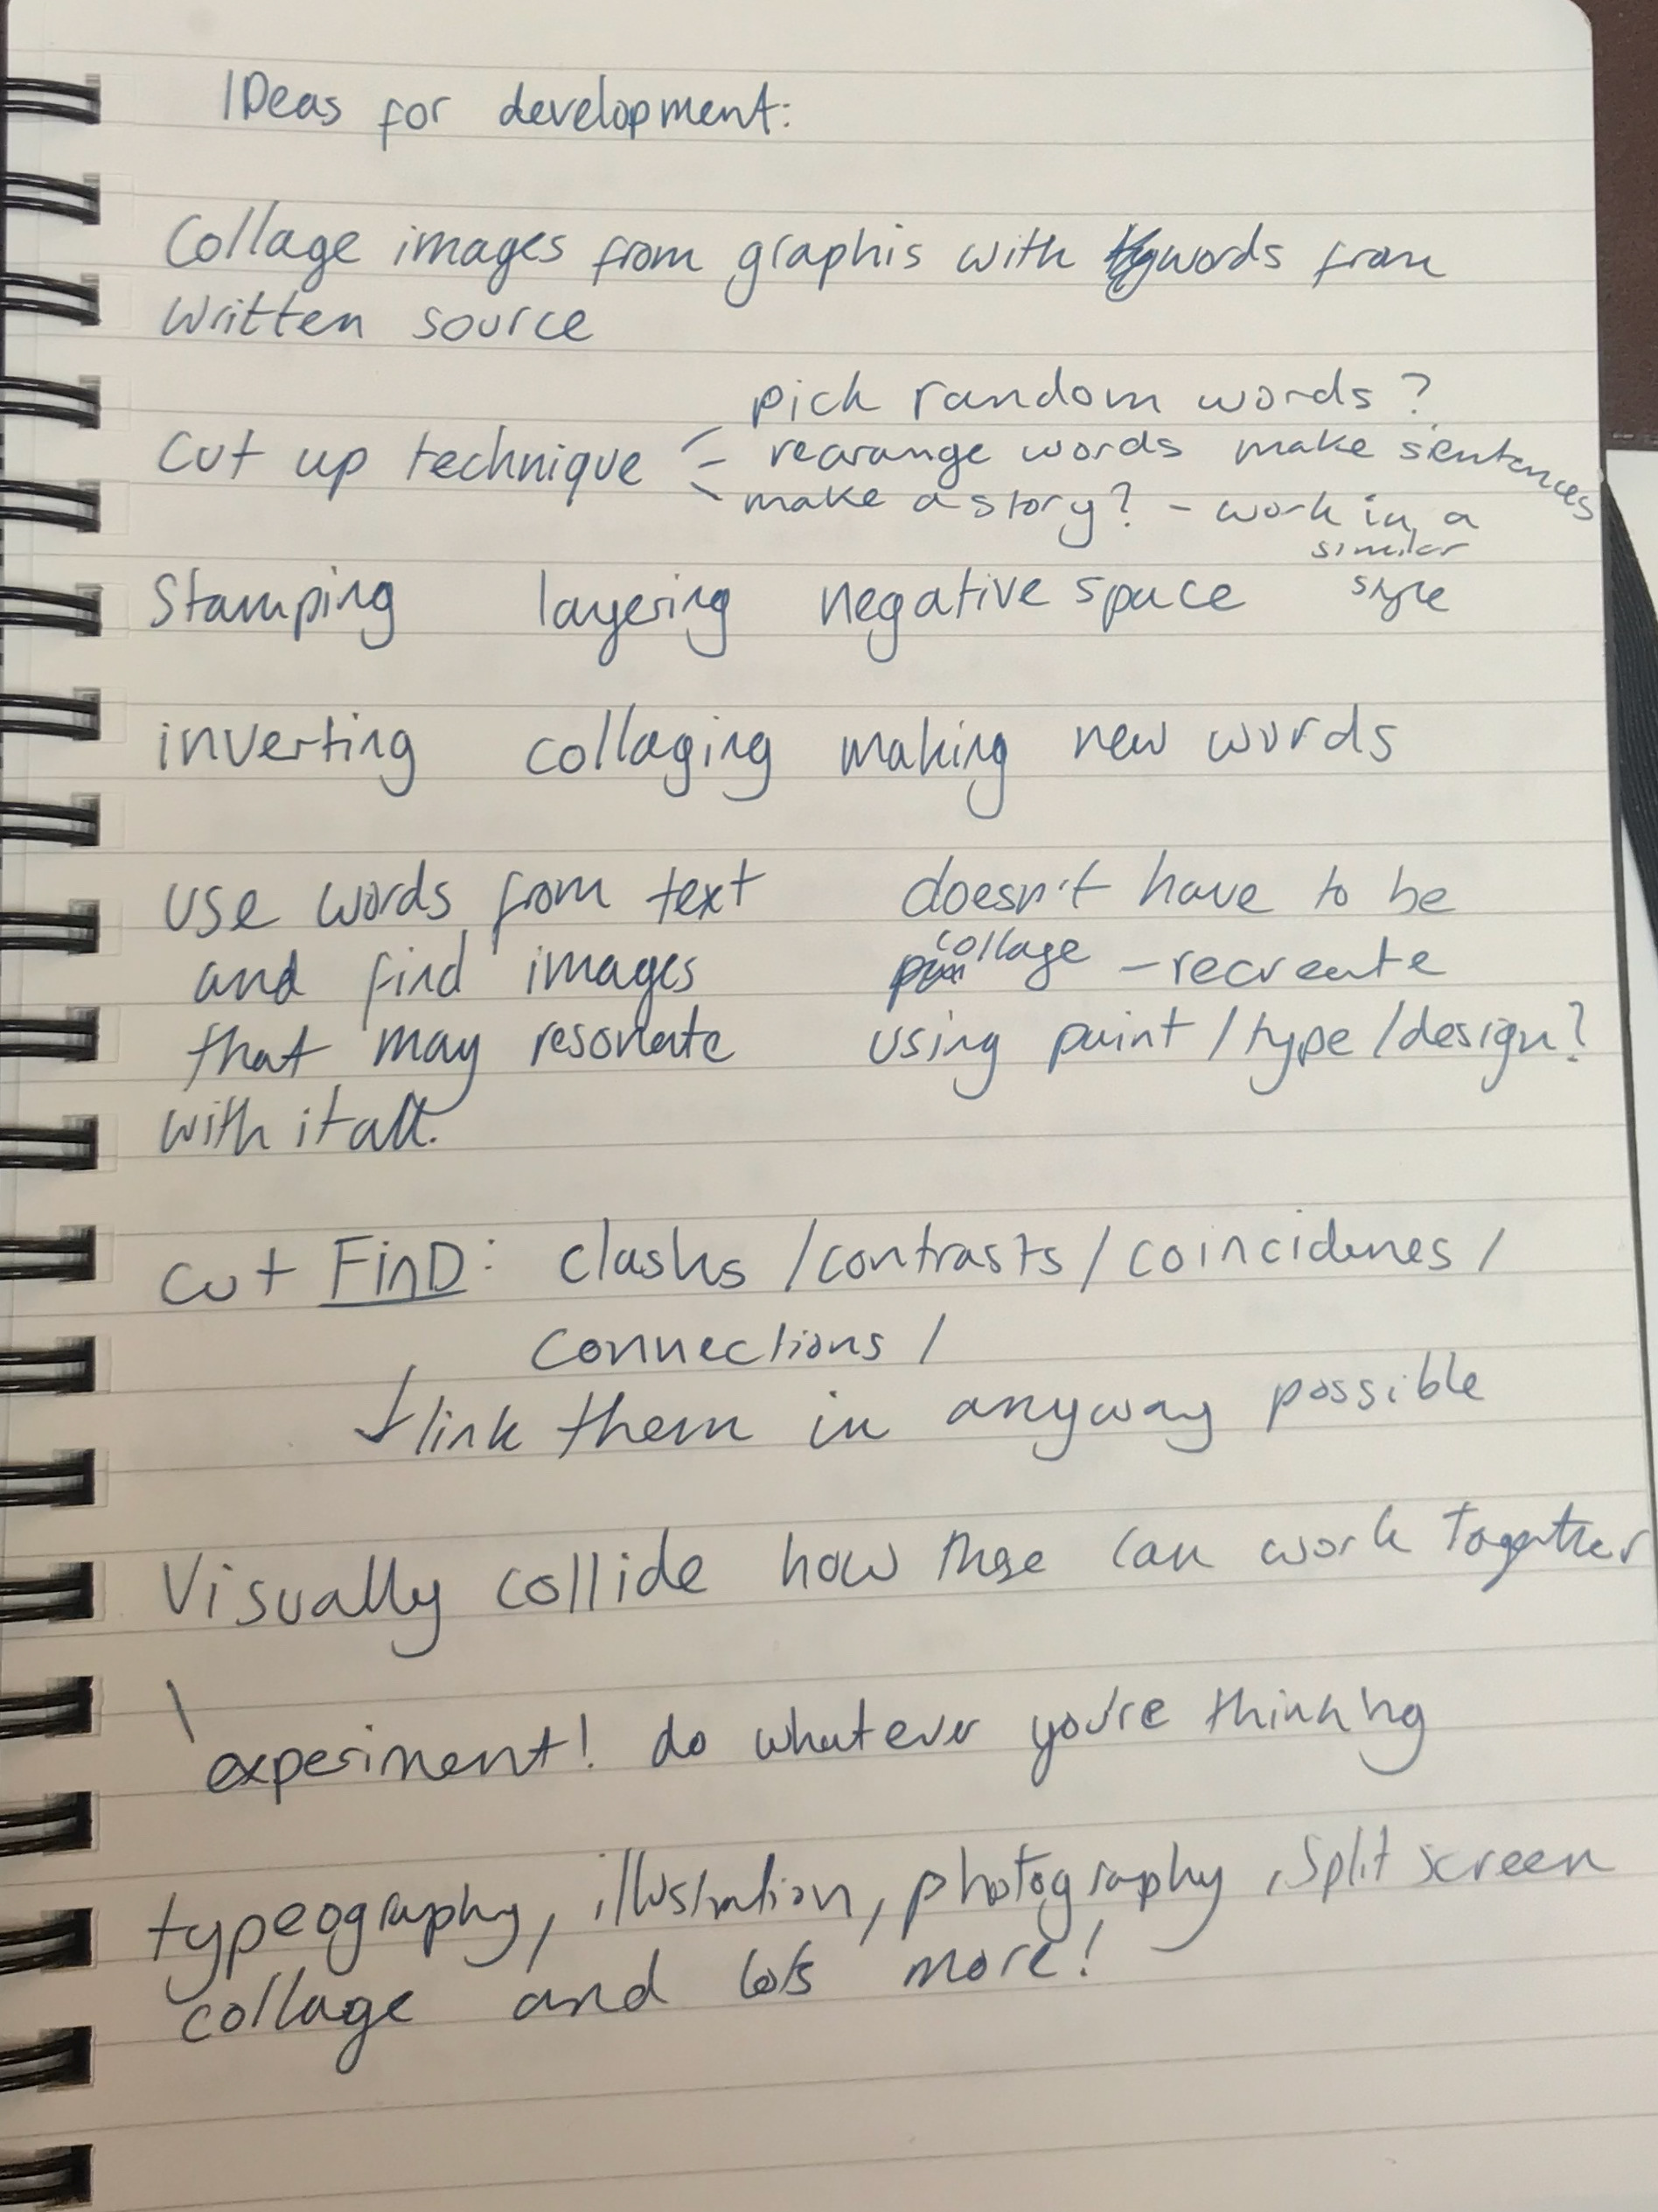 IDeas for development:
Collage images from graphis with words from
written source
pick random words?
Cut up technique - rearange words make sentences
make a story? - work in a
similar
style
Stamping layering negative space
inverting collaging making new words
use words from text
and find images
that may resonate
with it all.
doesn't have to be
collage - recreate
using paint / type / design?
cut FinD: clashs / contrasts / coincidenes /
connections /
link them in anyway possible
Visually collide how these can work Together
experiment! do whatever you're thinking
typeography, illustration, photography, split screen
collage and lots more!